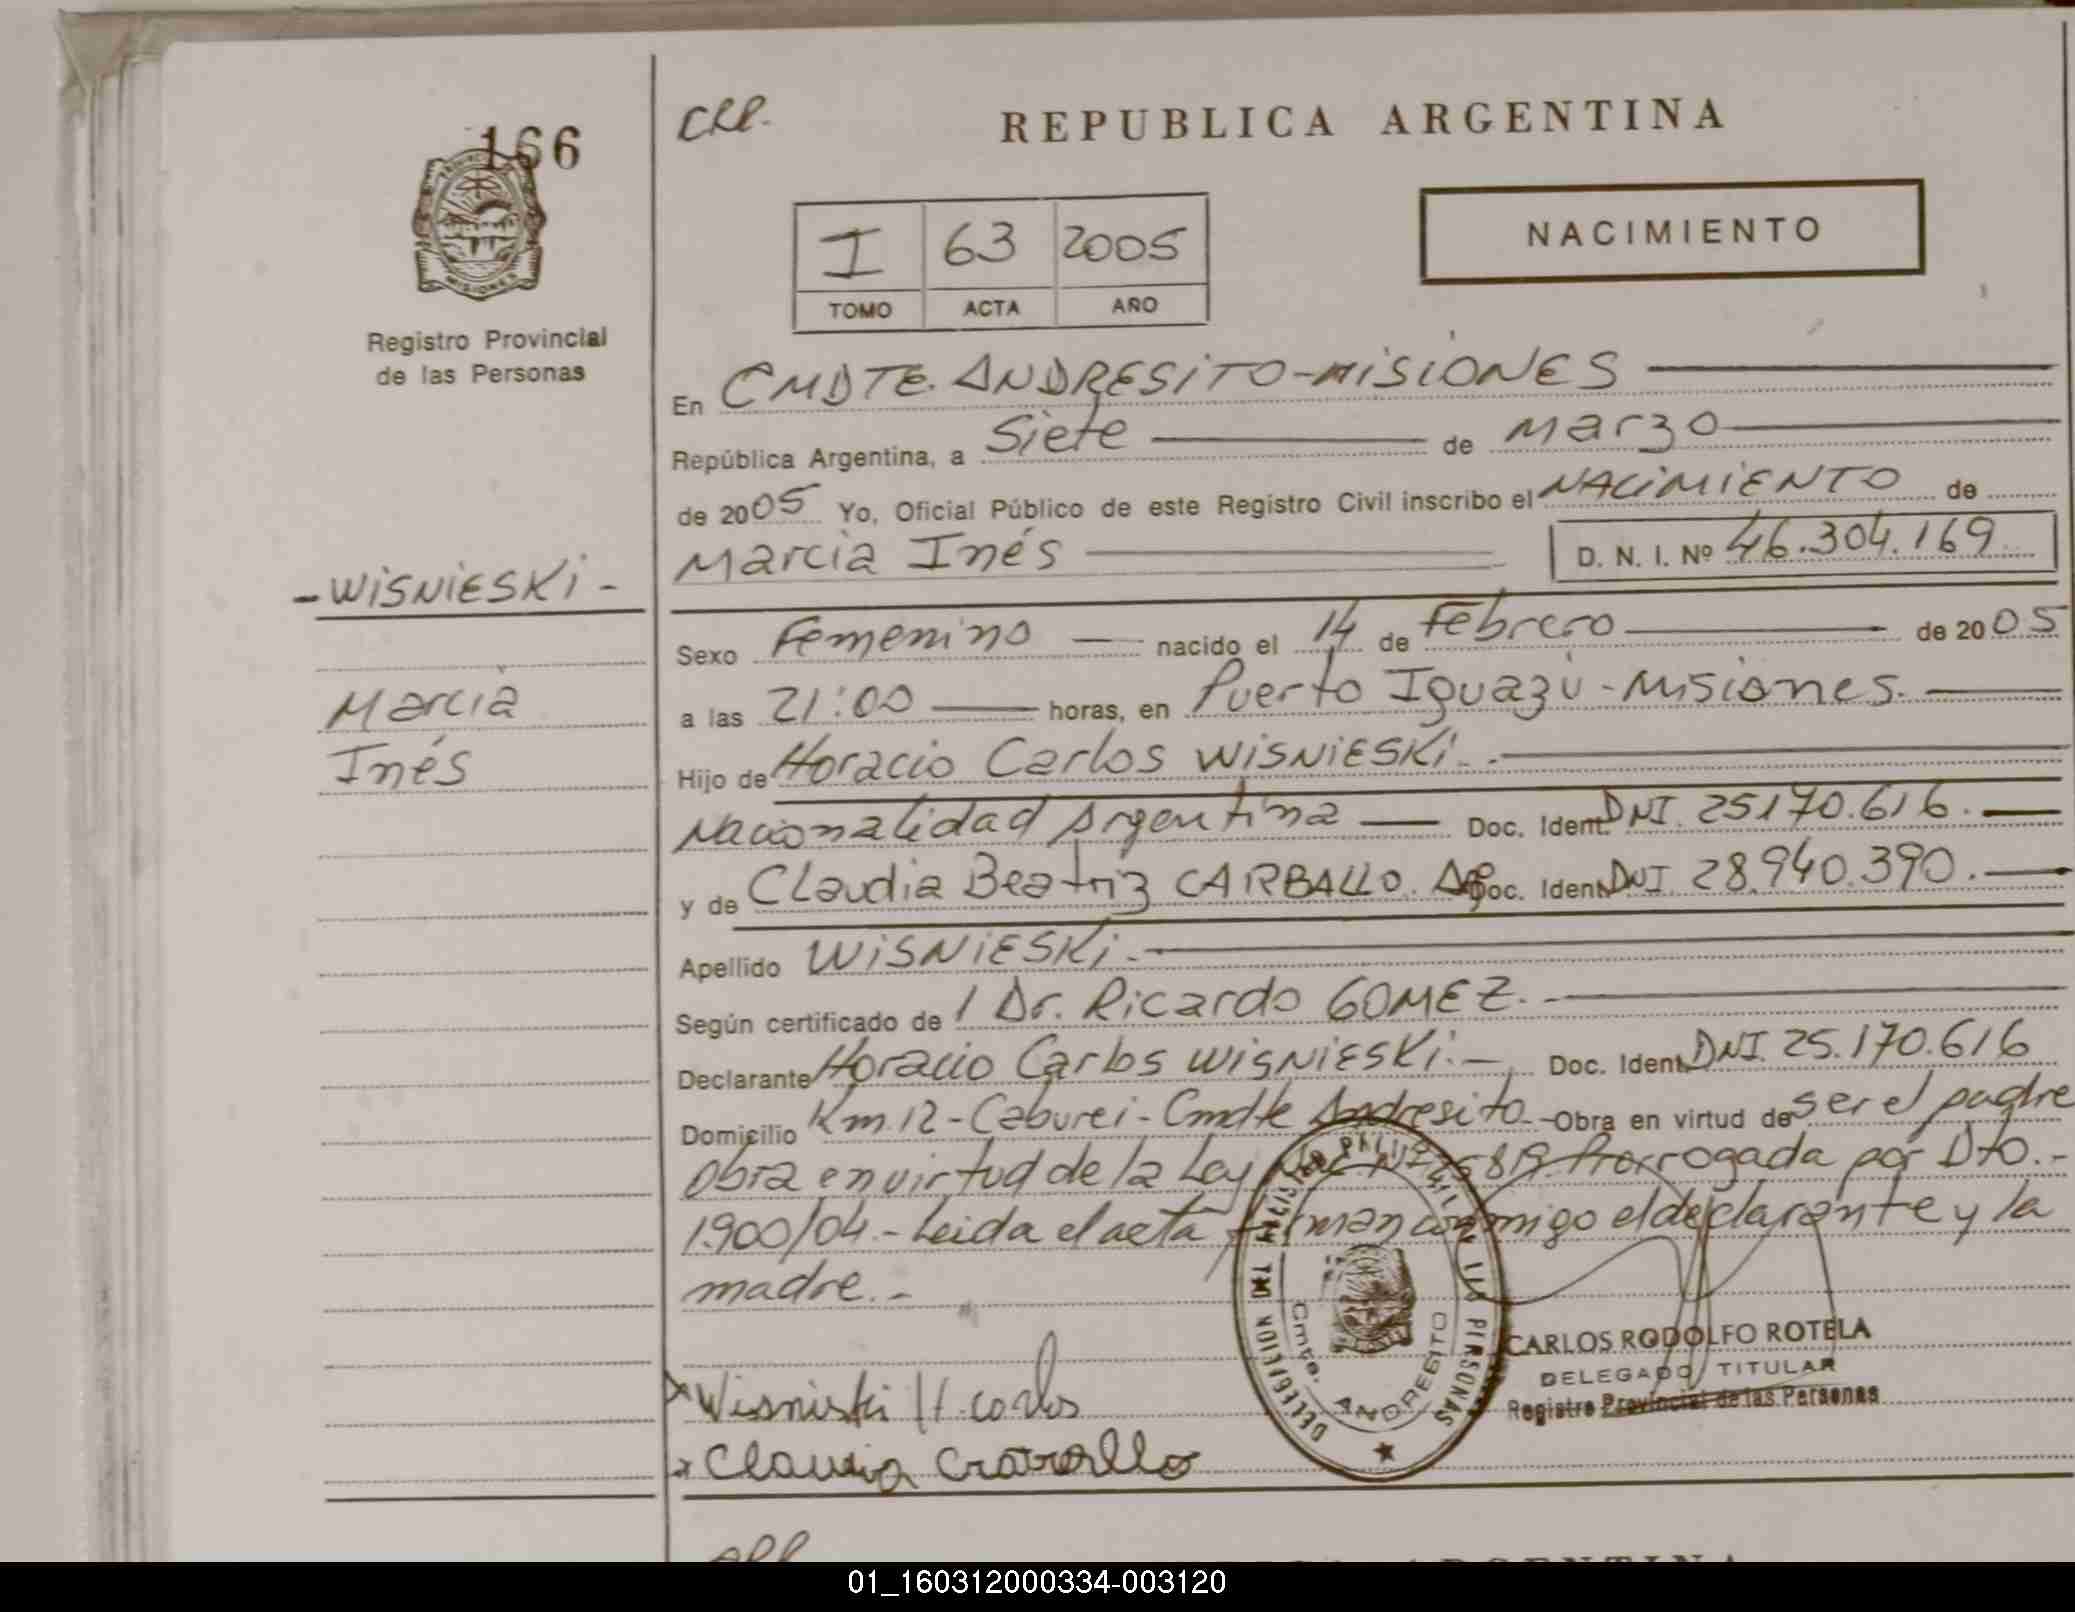 166
CRP.
REPUBLICA ARGENTINA
NACIMIENTO
I 63 2005
TOMO ACTA AÑO
Registro Provincial
de las Personas
En CMDTE. ANDRESITO-MISIONES
República Argentina, a Siete de Marzo
de 2005 Yo, Oficial Público de este Registro Civil inscribo el NACIMIENTO de
Marcia Inés D. N. I. Nº 46.304.169
-WISNIESKI-
Marcia
Inés
Sexo Femenino nacido el 14 de Febrero de 2005
a las 21:00 horas, en Puerto Iguazú-Misiones.
Hijo de Horacio Carlos WISNIESKI.
Nacionalidad Argentina Doc. Ident. DNI. 25170.616.
y de Claudia Beatriz CARBALLO. Doc. Ident. DNI 28.940.390.
Apellido WISNIESKI.
Según certificado de l Dr. Ricardo GOMEZ.
Declarante Horacio Carlos WISNIESKI. Doc. Ident. DNI. 25.170.616
Domicilio Km.12-Caburei-Cmdte Andresito. Obra en virtud de ser el padre
Obra en virtud de la Ley 25819. Prorrogada por Dto.-
1.900/04.- Leida el acta firman conmigo el declarante y la
madre.-
Wisniski H. carlos
Claudia Caraballo
DELEGACION DEL REGISTRO PROVINCIAL DE LAS PERSONAS
Cmte. ANDRESITO
CARLOS RODOLFO ROTELA
DELEGADO TITULAR
Registro Provincial de las Personas
ARGENTINA
01_160312000334-003120